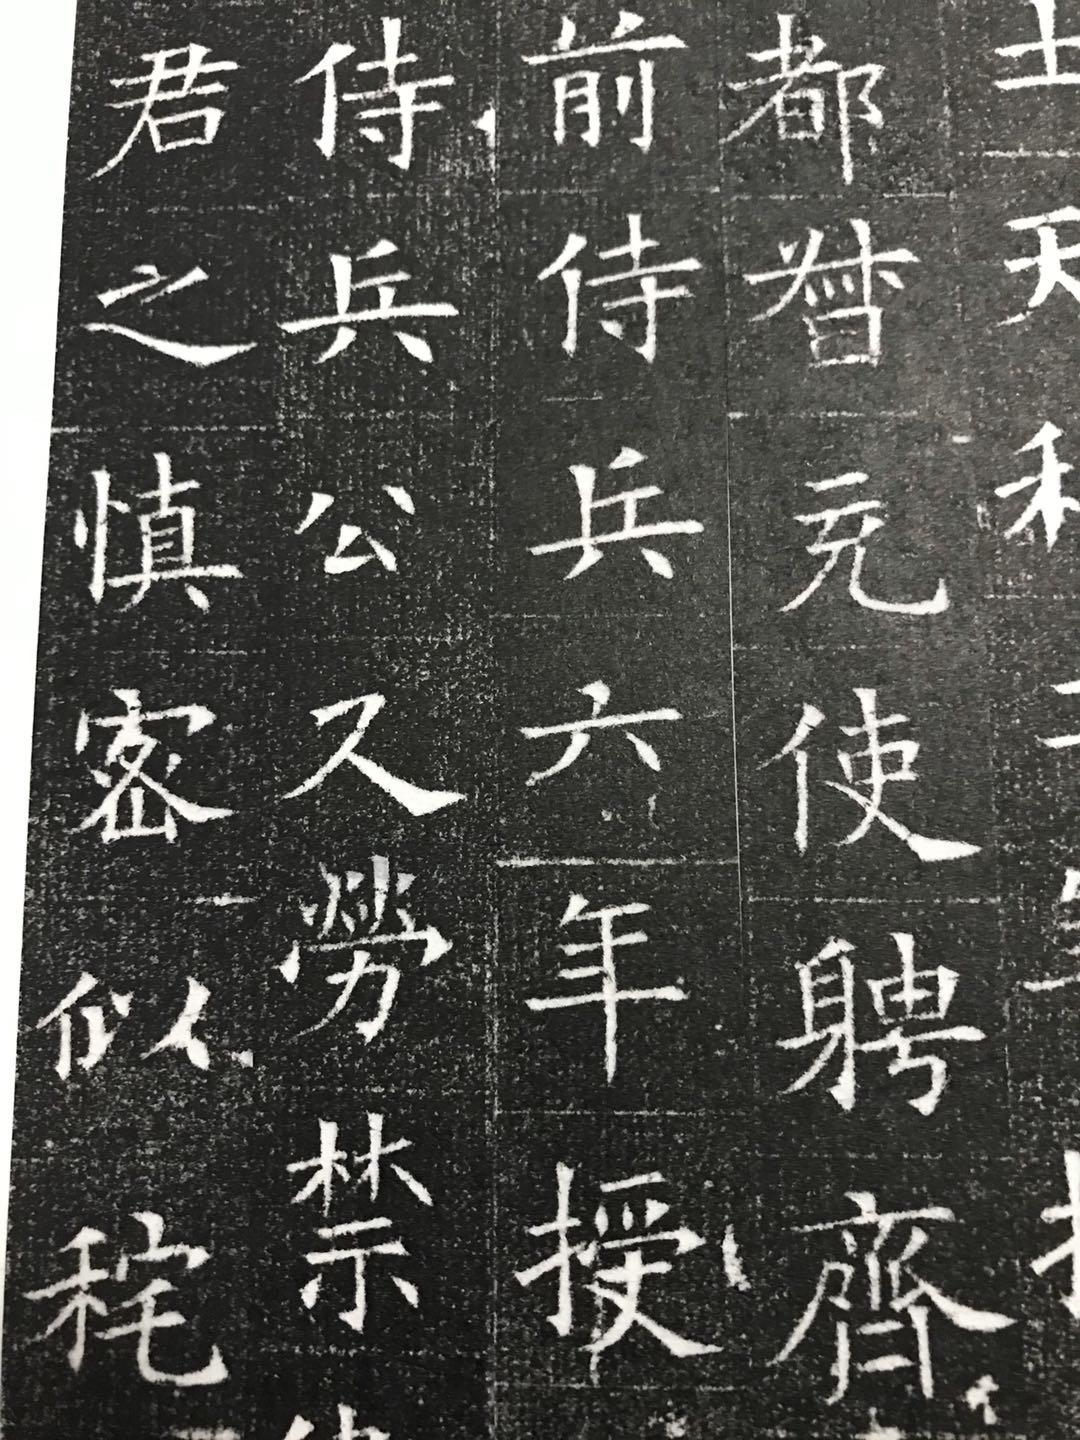 天和年
都督充使聘齊
前侍兵六年授
侍兵公久勞禁
君之慎密似秺